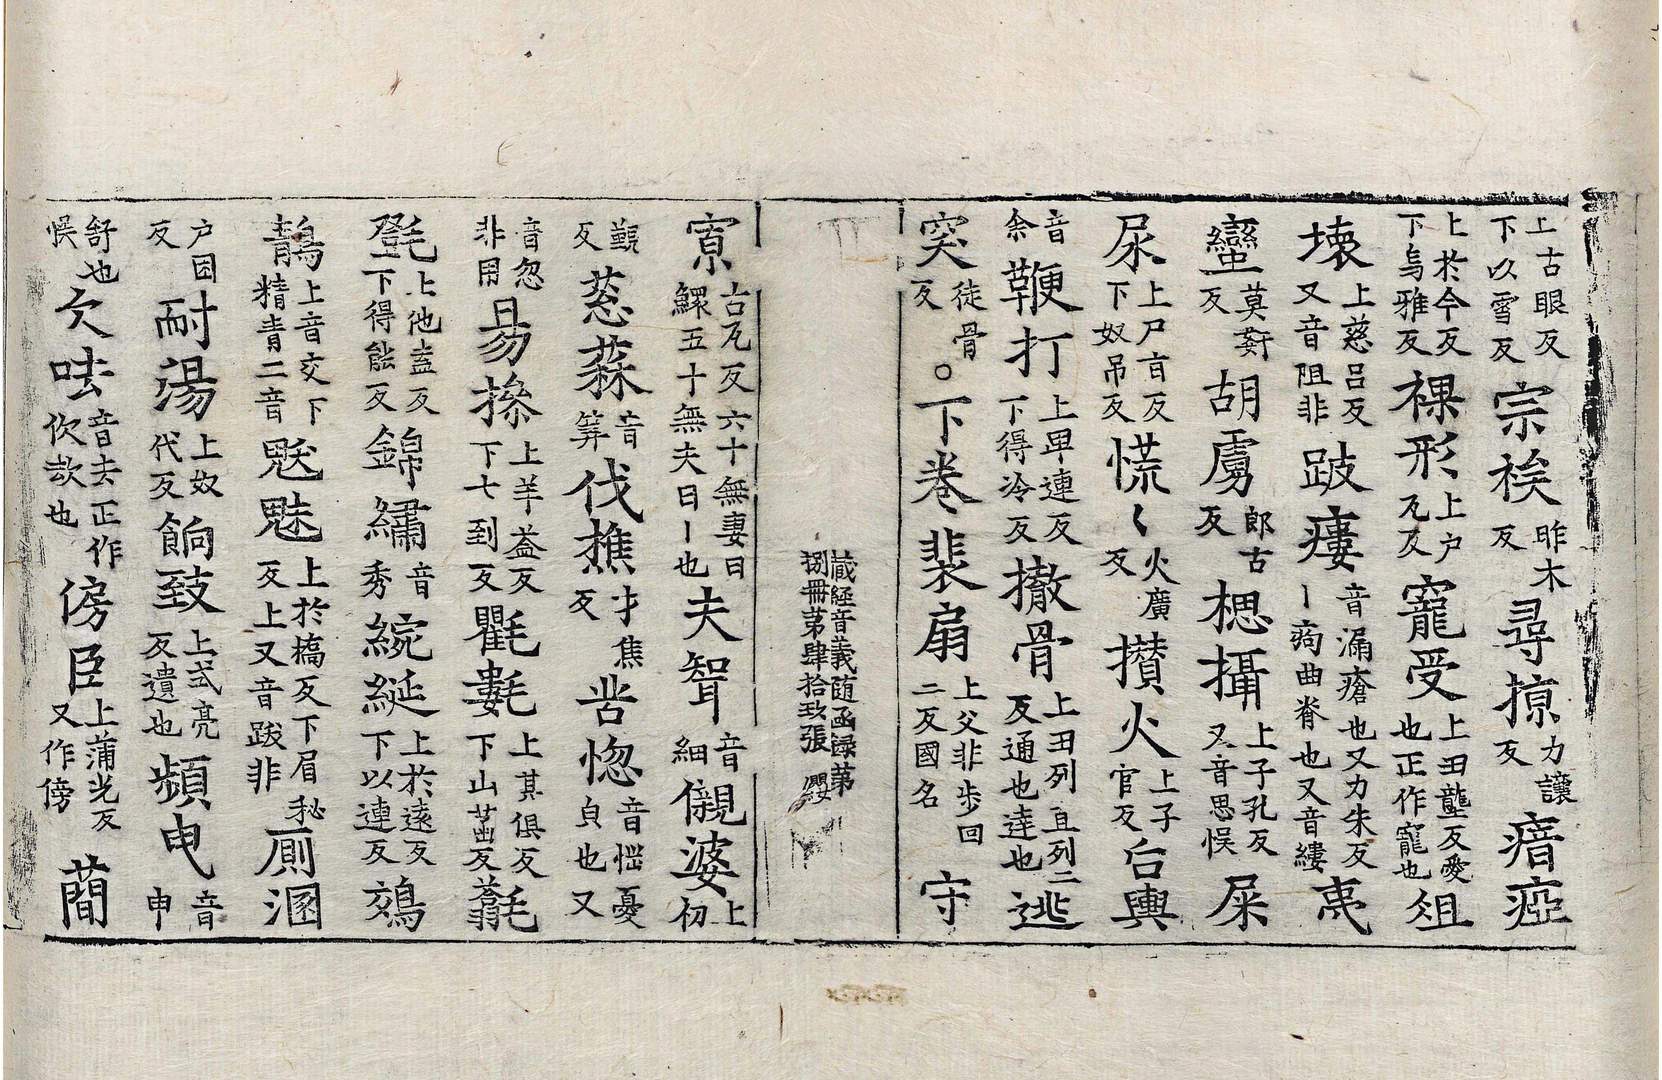 上古眼反下以雪反宗族昨木反尋掠力讓反瘖瘂
上於今反下烏雅反裸形上户瓦反寵受上丑壟反愛也正作寵也俎
壊上慈呂反又音阻非跛瘻音漏瘡也又力朱反丨痀曲脊也又音縷夷
蠻莫𮑋反胡虜郎古反楒攝上子孔反又音思悮屎
尿上尸盲反下奴吊反慌〻火廣反攢火上子官反台輿
音余鞭打上卑連反下得冷反撤骨上丑列直列二反通也達也逃
突徒骨反○下卷裴扇上父非步回二反國名守
藏経音義随函録第
捌冊第肆拾玖張 㒕
寡古瓦反六十無妻曰鰥五十無夫曰丨也夫壻音細儭婆上初
覲反葱蒜音筭伐樵才焦反㫮惚音惱憂貟也又
音忽非用易摻上羊益反下七到反氍𣯜上其俱反下山𦮔反㲪
㲪上他盍反下得能反錦繡音秀綩綖上於遠反下以連反鵁
鶄上音交下精青二音魃魅上於橋反下眉秘反上又音跋非厠溷
户困反耐湯上奴代反餉致上式亮反遺也頻申音申
舒也悮欠呿音去正作佽㰦也傍臣上蒲光反又作傍蕳